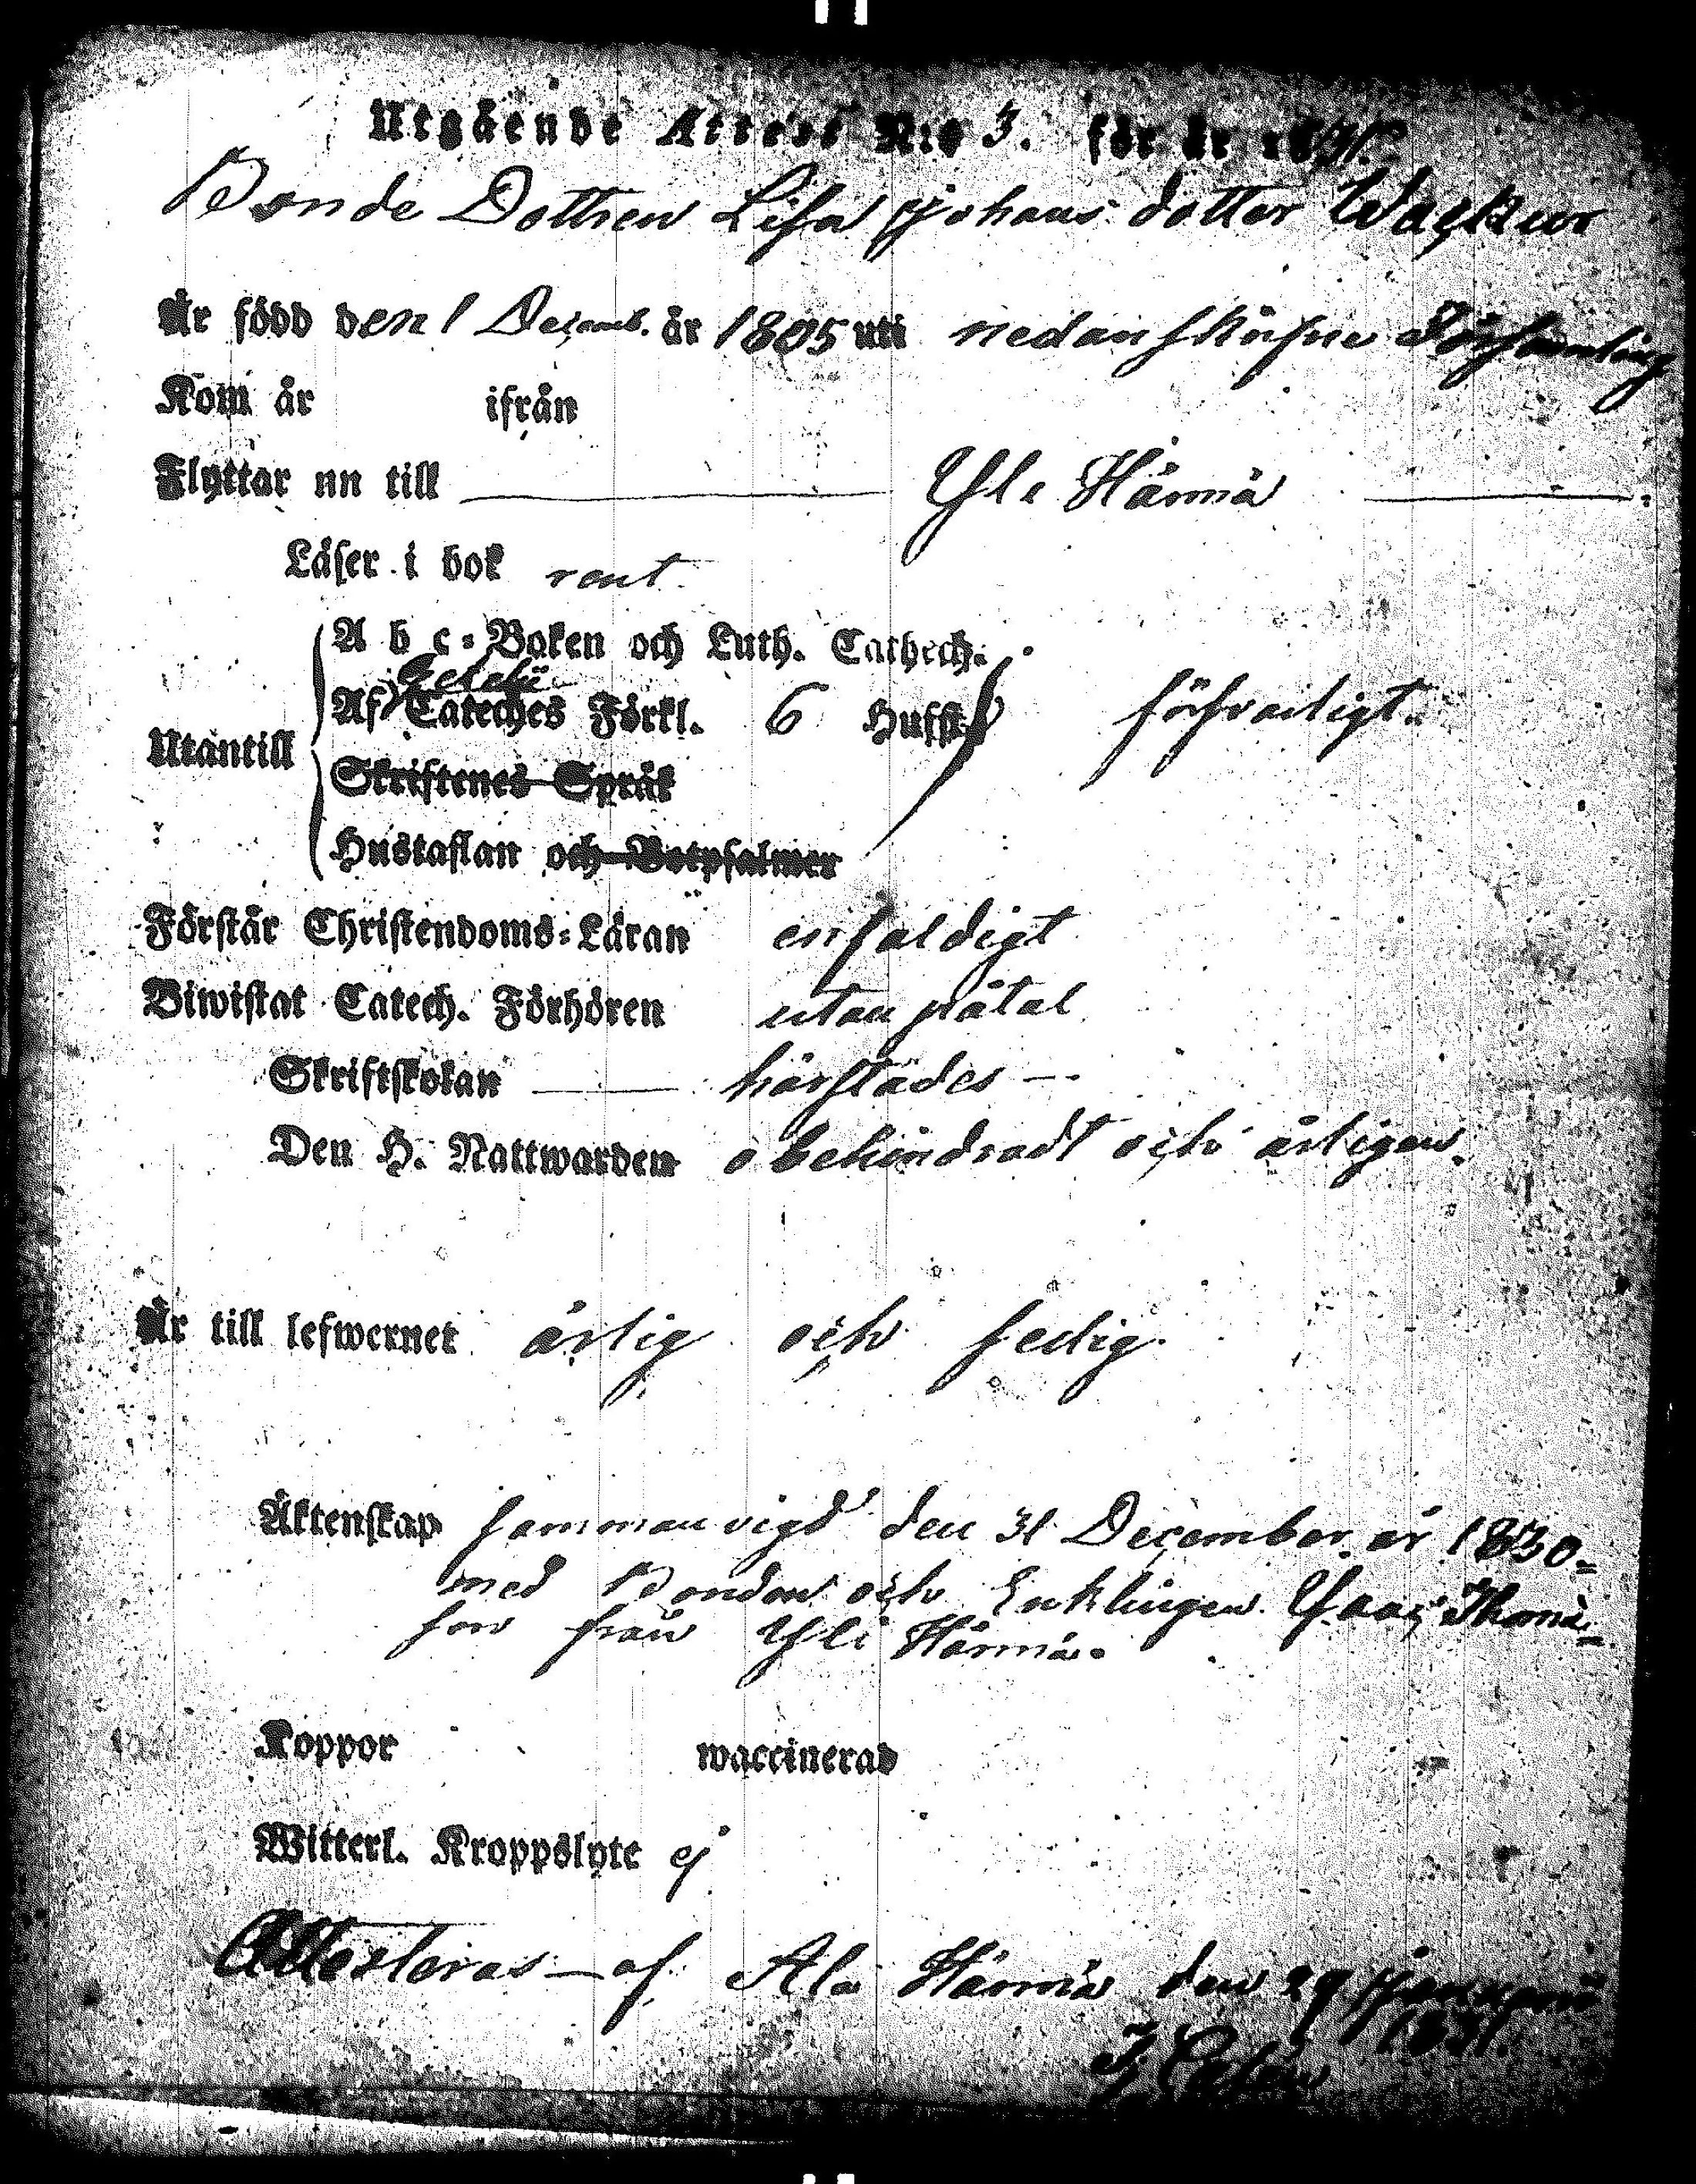 Utgående Attest N:o 3. för år 1831.
Bonde Dottren Lisa Johans dotter
Är född den 1 Decemb. år 1805 uti nedanskrifne Församling
Kom år ifrån
Flyttar nu till Yli Härmä
Läser i bok rent
A b c-Boken och Luth. Cathech.
Af Cateches Förkl. 6 Hufst. försvarligt.
Utantill
Skriftenes Språk
Hustaflan och Botpsalmer
Förstår Christendoms-Läran enfaldigt
Biwistat Catech. Förhören utan påtal
Skriftskolan härstädes
Den H. Nattwarden obehindradt och årligen.
Är till lefwernet ärlig och sedig.
Äktenskap sammanvigd den 31 December år 1830
med Bonden och Enklingen Isaac Thomæ
son från Yli Härmä.
Koppor waccinerad
Witterl. Kroppslyte ej
Attesteras af Ala Härmä den 29 Januarii
1831.